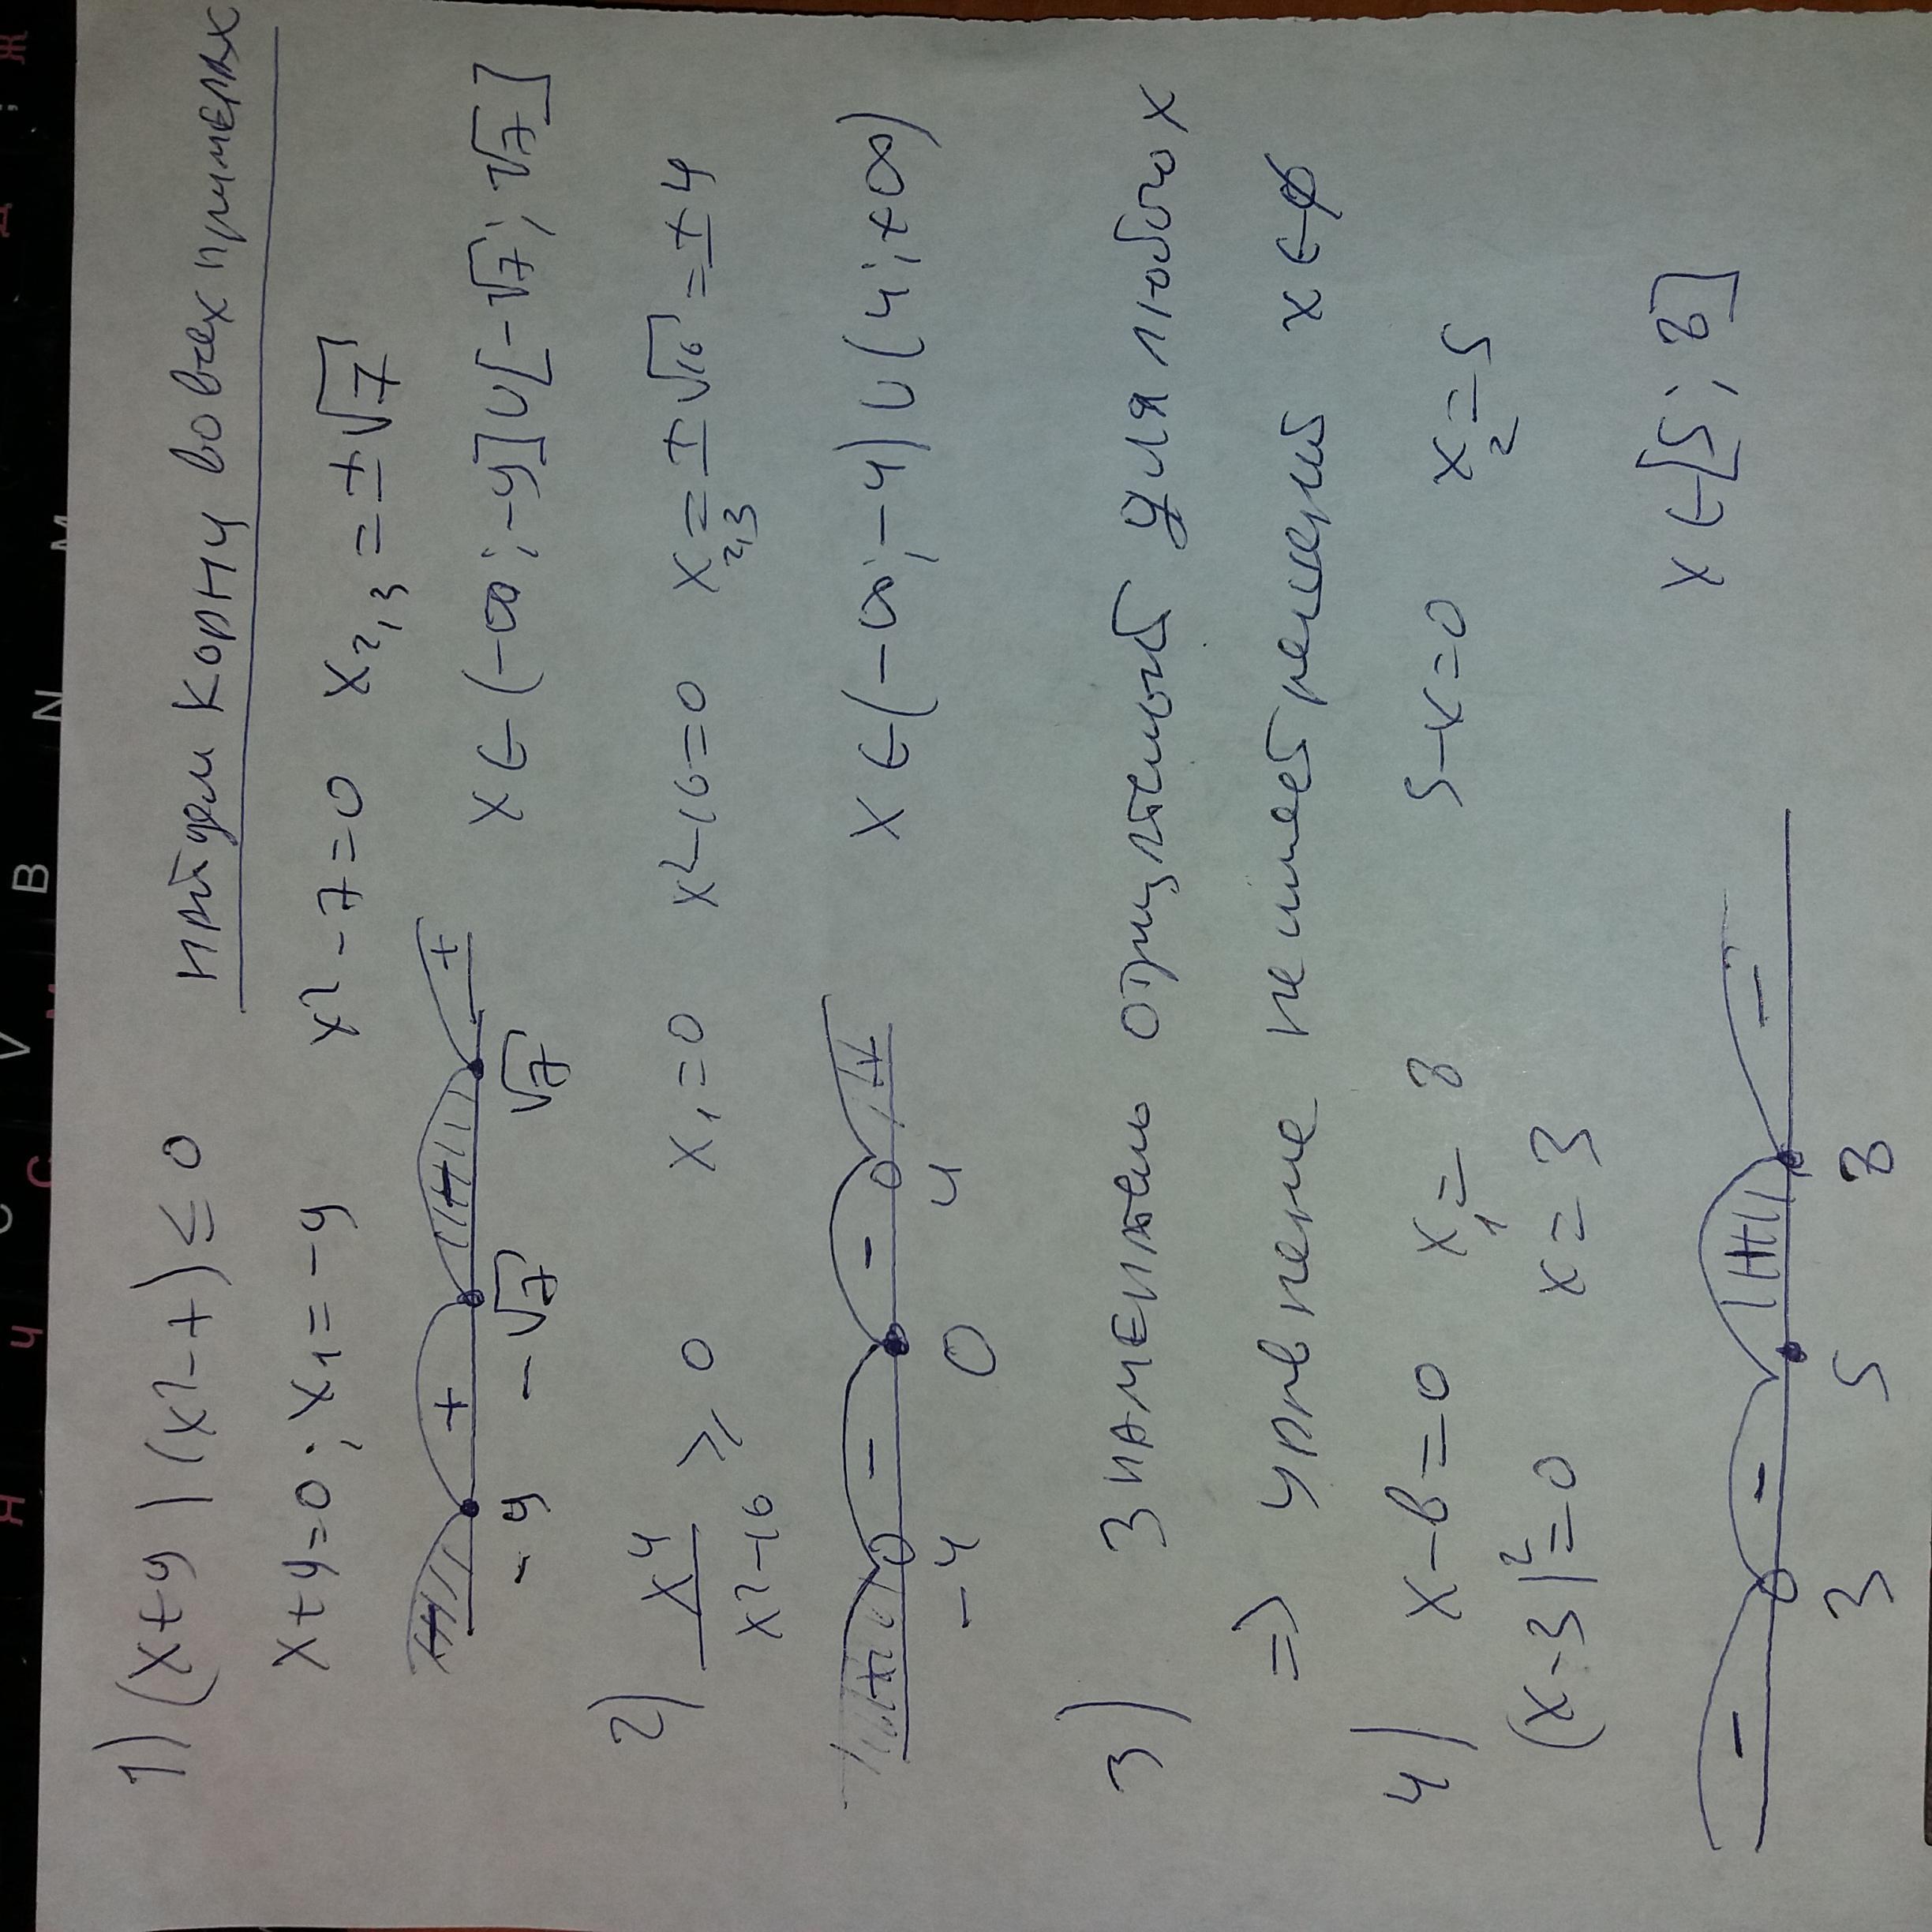 1) (x+y)(x²-7) ≤ 0
найдем корни во всех примерах
x+y=0; x₁=-y x²-7=0 x₂,₃=±√7
+ + + +
-y -√7 √7
x∈(-∞;-y]∪[-√7;√7]
2) x⁴/(x²-16) ≥ 0
x₁=0 x²-16=0 x₂,₃=±√16=±4
+ - - +
-4 0 4
x∈(-∞;-4)∪(4;+∞)
3) знаменатель отрицательный для любого x
=> уравнение не имеет решения x∈∅
4) x-8=0 x₁=8 5-x=0 x₂=5
(x-3)²=0 x=3
- - + -
3 5 8
x∈[5;8]